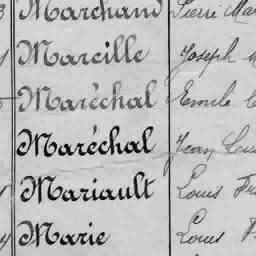 Marchand Pierre
Marcille Joseph
Maréchal Emile
Maréchal Jean
Mariault Louis
Marie Louis